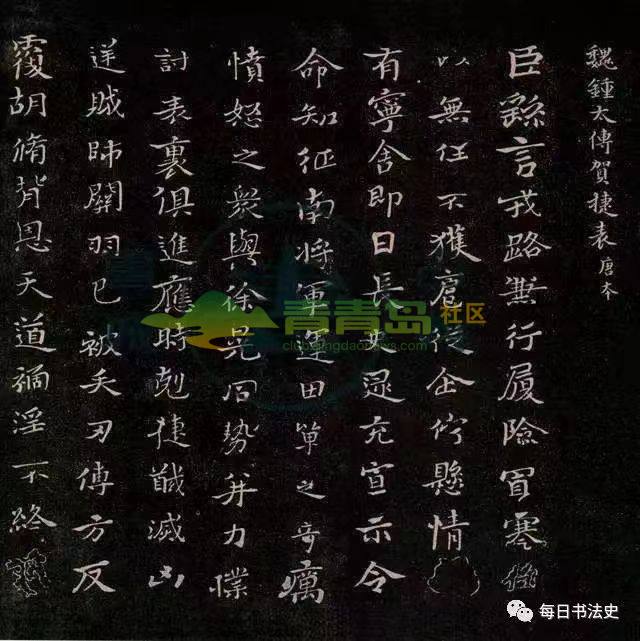 魏鍾太傅賀捷表 唐本
臣繇言戎路兼行履險冒寒
以無任不獲扈從企佇懸情
有寧舍即日長史逯充宣示令
命知征南將軍運田單之奇厲
憤怒之衆與徐晃同勢并力撲
討表裏俱進應時剋捷馘滅凶
逆賊帥關羽已被矢刃傅方反
覆胡脩背恩天道禍淫不終
青青岛社区
club.qingdaonews.com
每日书法史